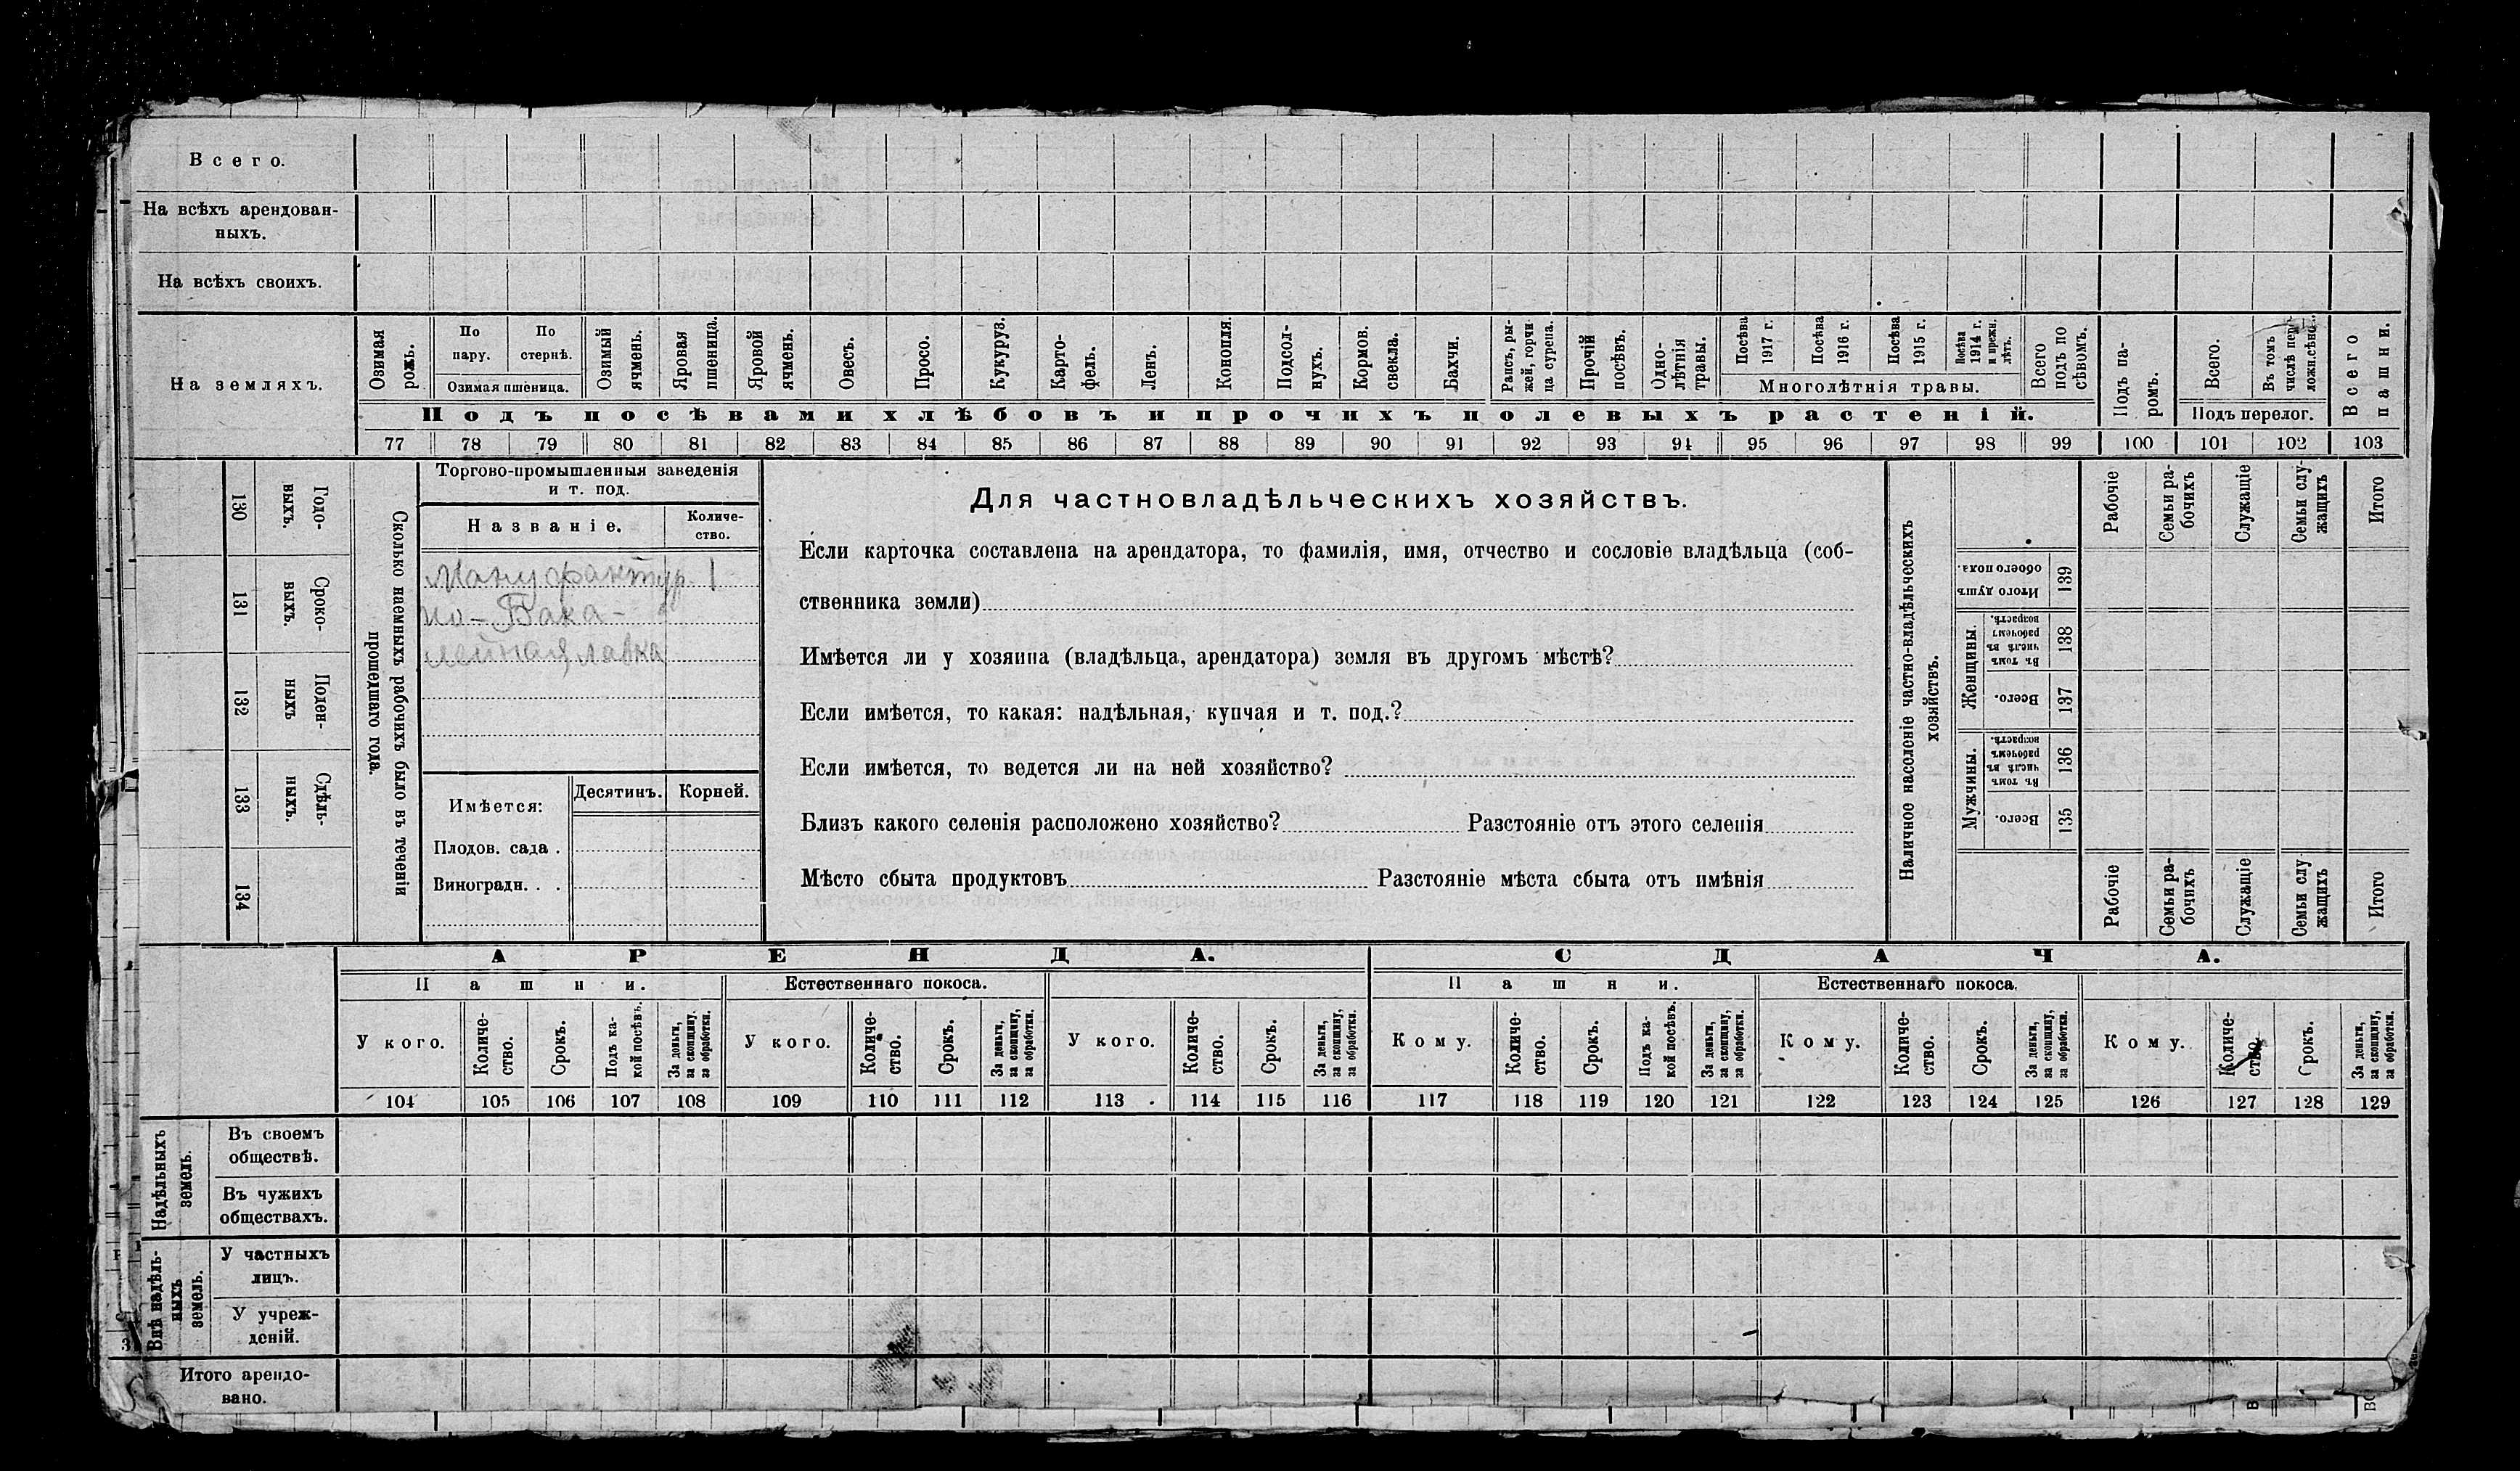 Всего.
На всѣхъ арендован-
ныхъ.
На всѣхъ своихъ.
На земляхъ.
Озимая рожь.
По пару.
По стернѣ.
Озимая пшеница.
Озимый ячмень.
Яровая пшеница.
Яровой ячмень.
Овесъ.
Просо.
Кукуруз.
Карто-
фель.
Ленъ.
Конопля.
Подсол-
нухъ.
Кормов. свекла.
Бахчи.
Рапсъ, ры-
жей, горчи
ца сурепа.
Прочій посѣвъ.
Одно-
лѣтнія травы.
Посѣва 1917 г.
Посѣва 1916 г.
Посѣва 1915 г.
Посѣва 1914 г. и прежн. лѣтъ.
Многолѣтнія травы.
Всего подъ по
сѣвомъ.
Подъ посѣвами хлѣбовъ и прочихъ полевыхъ растеній.
Подъ па-
ромъ.
Всего.
Въ томъ числѣ
Подъ перелог.
Всего пашни.
77 78 79 80 81 82 83 84 85 86 87 88 89 90 91 92 93 94 95 96 97 98 99 100 101 102 103
130
Годо-
выхъ.
131
Сроко-
выхъ.
132
Поден-
ныхъ
133
Сдѣль-
ныхъ.
134
Сколько наемныхъ рабочихъ было въ теченіи
прошедшаго года.
Торгово-промышленныя заведенія
и т. под.
Названіе.
Количе-
ство.
Мануфактур 1
но-Бака-
лейная лавка
Имѣется:
Десятинъ.
Корней.
Плодов. сада .
Виноградн. . .
Для частновладѣльческихъ хозяйствъ.
Если карточка составлена на арендатора, то фамилія, имя, отчество и сословіе владѣльца (соб-
ственника земли)
Имѣется ли у хозяина (владѣльца, арендатора) земля въ другомъ мѣстѣ?
Если имѣется, то какая: надѣльная, купчая и т. под.?
Если имѣется, то ведется ли на ней хозяйство?
Близъ какого селенія расположено хозяйство? Разстояніе отъ этого селенія
Мѣсто сбыта продуктовъ Разстояніе мѣста сбыта отъ имѣнія
Наличное населеніе частно-владѣльческихъ
хозяйствъ.
Рабочіе
Семьи ра-
бочихъ
Служащіе
Семьи слу-
жащихъ
Итого
Итого душъ обоего пола.
139
Женщины.
Въ томъ числѣ въ рабочемъ возрастѣ.
138
Всего.
137
Мужчины.
Въ томъ числѣ въ рабочемъ возрастѣ.
136
Всего.
135
Рабочіе
Семьи ра-
бочихъ
Служащіе
Семьи слу
жащихъ
Итого
АРЕНДА.
СДАЧА.
Пашни.
Естественнаго покоса.
Пашни.
Естественнаго покоса.
У кого.
Количе-
ство.
Срокъ.
Подъ ка-
кой посѣвъ.
За деньги, за скопщину, за обработки.
У кого.
Количе-
ство.
Срокъ.
За деньги, за скопщину, за обработки.
У кого.
Количе-
ство.
Срокъ.
За деньги, за скопщину, за обработки.
Кому.
Количе-
ство.
Срокъ.
Подъ ка-
кой посѣвъ.
За деньги, за скопщину, за обработки.
Кому.
Количе-
ство.
Срокъ.
За деньги, за скопщину, за обработки.
Кому.
Количе-
ство.
Срокъ.
За деньги, за скопщину, за обработки.
104 105 106 107 108 109 110 111 112 113 114 115 116 117 118 119 120 121 122 123 124 125 126 127 128 129
Надѣльныхъ
земель.
Въ своемъ
обществѣ.
Въ чужихъ
обществахъ.
Внѣ надѣль-
ныхъ
земель.
У частныхъ
лицъ.
У учреж-
деній.
Итого арендо-
вано.